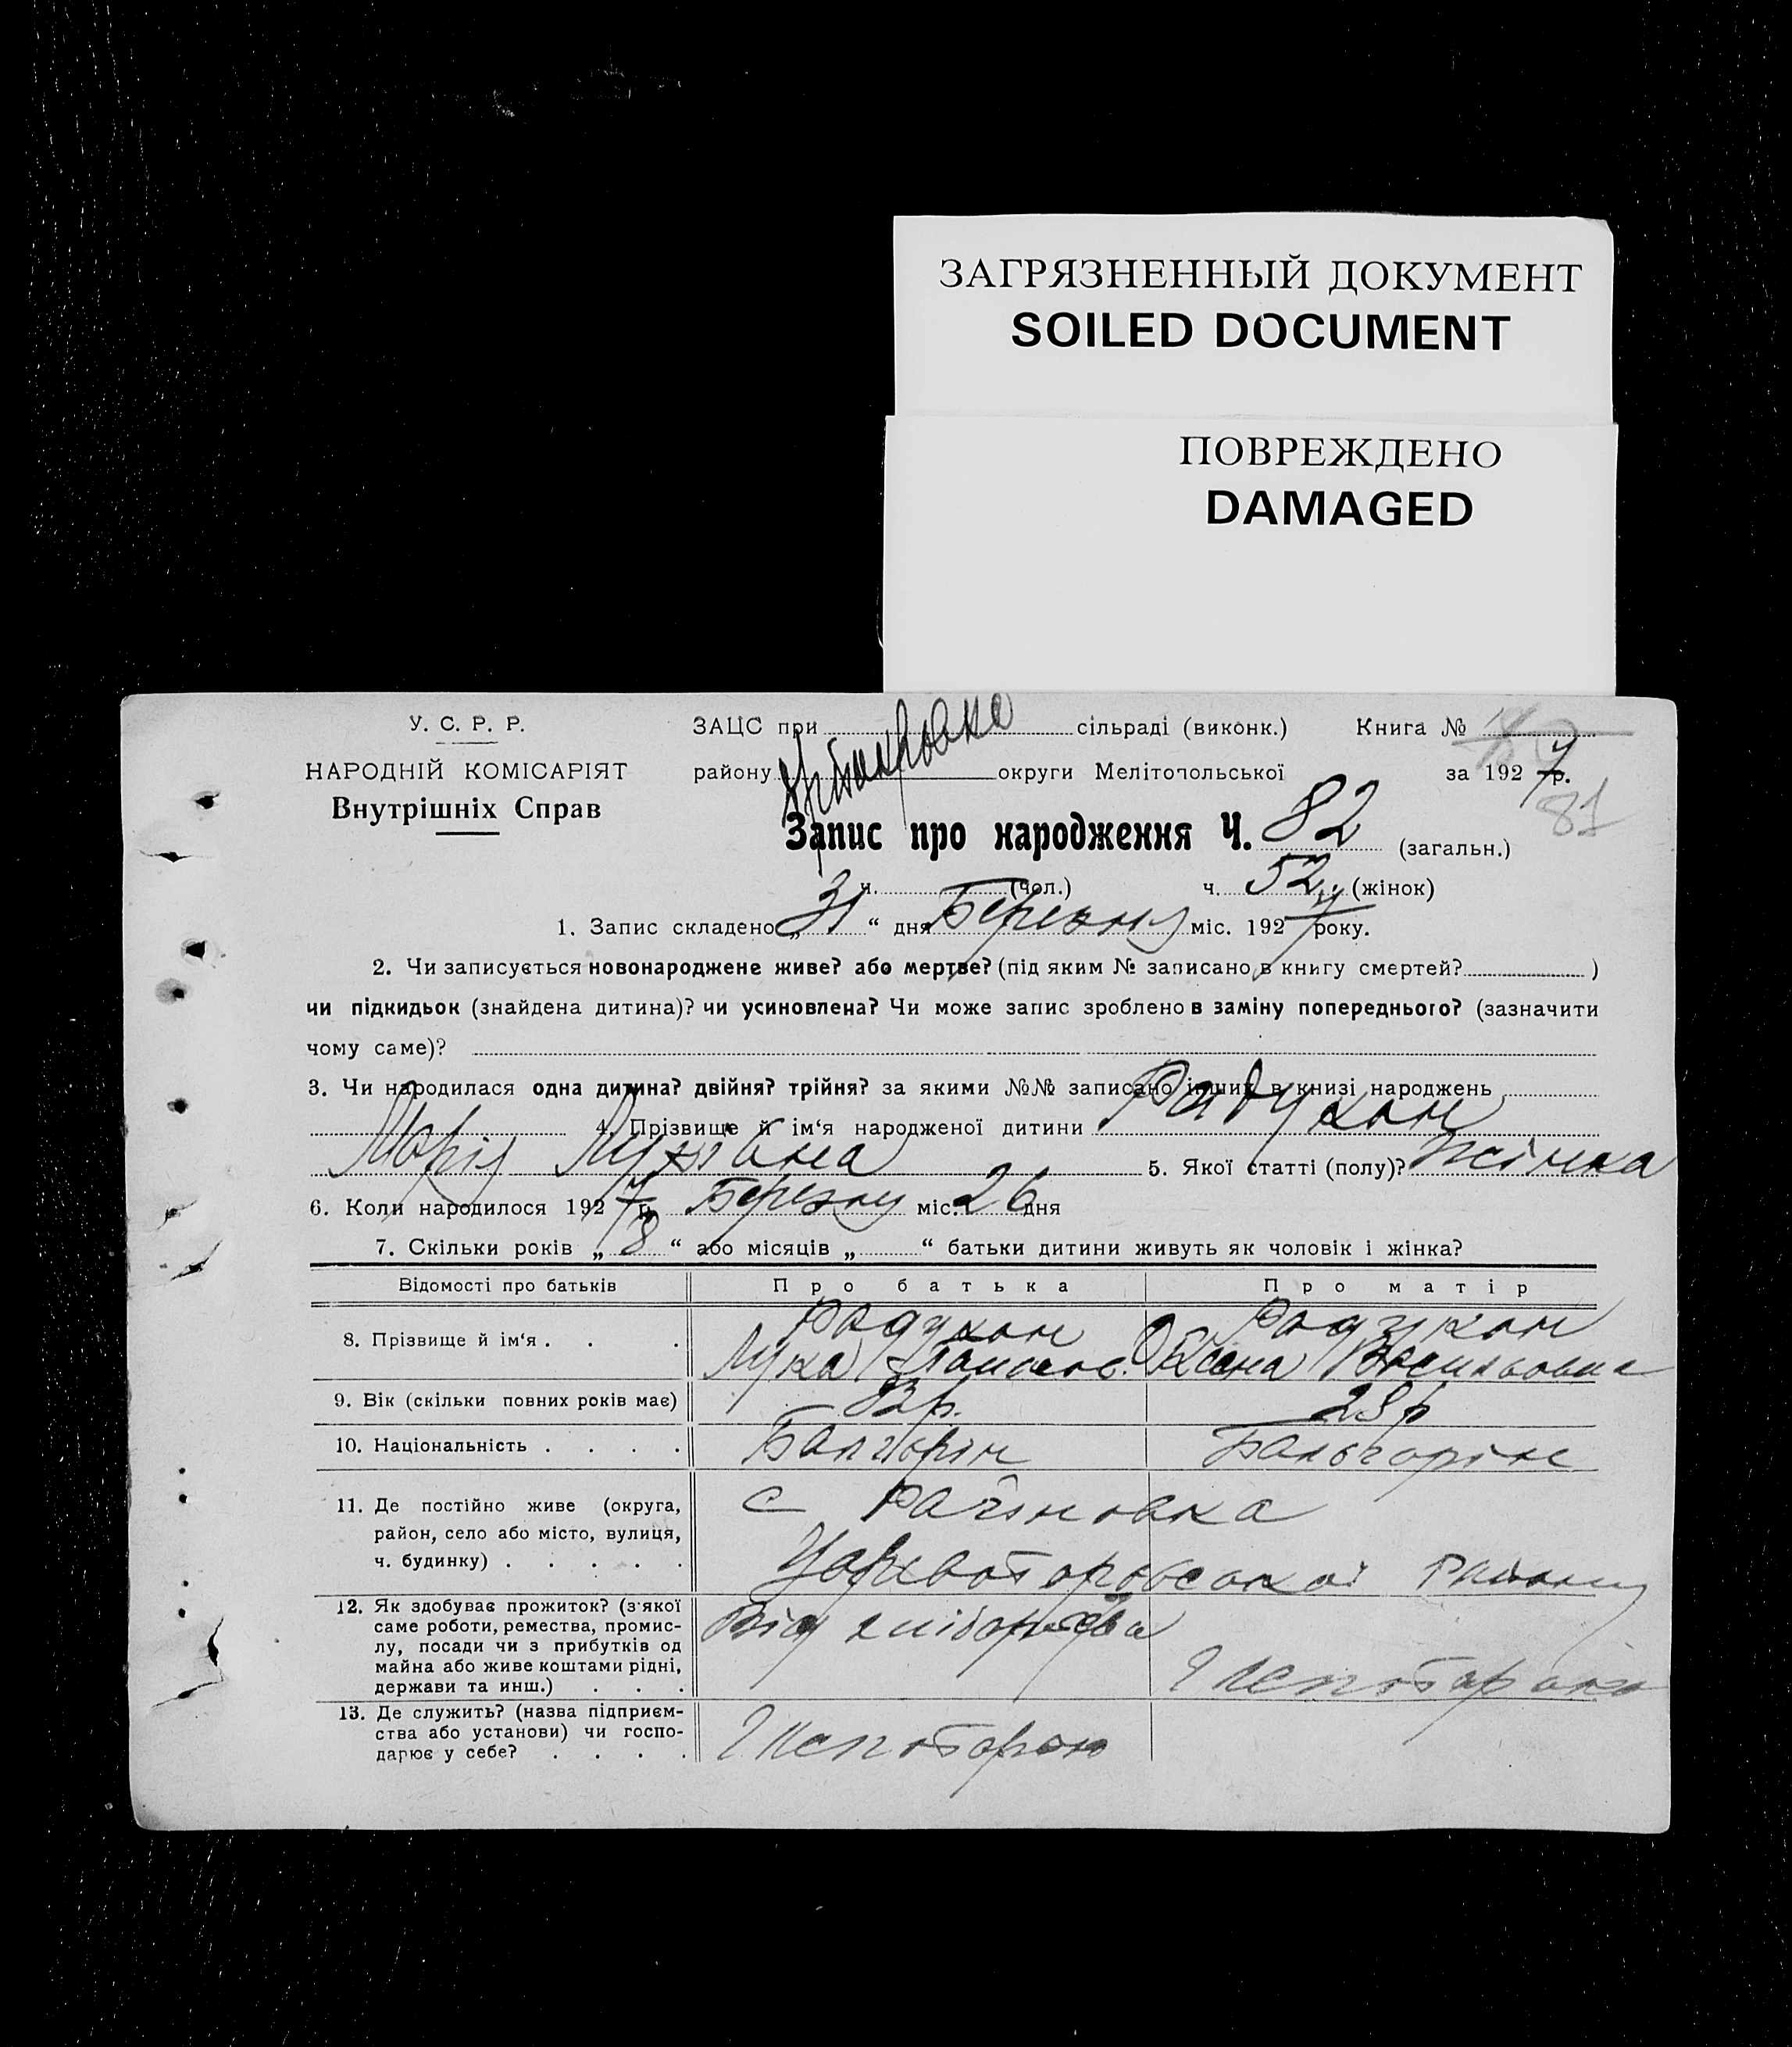 ЗАГРЯЗНЕННЫЙ ДОКУМЕНТ
SOILED DOCUMENT
ПОВРЕЖДЕНО
DAMAGED
У. С. Р. Р.
НАРОДНІЙ КОМІСАРІЯТ
Внутрішніх Справ
ЗАЦС при сільраді (виконк.) Книга №
району округи Мелітопольської за 1927 р.
81
Запис про народження Ч. 82 (загальн.)
ч. (чол.) ч. 52 (жінок)
1. Запис складено „ 31 “ дня Березню міс. 1927 року.
2. Чи записується новонароджене живе? або мертве? (під яким № записано в книгу смертей? )
чи підкидьок (знайдена дитина)? чи усиновлена? Чи може запис зроблено в заміну попереднього? (зазначити
чому саме)?
3. Чи народилася одна дитина? двійня? трійня? за якими №№ записано інших в книзі народжень
4. Прізвище й ім‘я народженої дитини Радукан
Марія 5. Якої статті (полу)? жінка
6. Коли народилося 1927 р. Березню міс. 26 дня
7. Скільки років „ 8 “ або місяців „ “ батьки дитини живуть як чоловік і жінка?
Відомості про батьків Про батька Про матір
8. Прізвище й ім‘я . . . Радукан Радукан
Лука Васильовна
9. Вік (скільки повних років має) 32 р. 28 р
10. Національність . . . . Балгорін Бальгорін
11. Де постійно живе (округа,
район, село або місто, вулиця,
ч. будинку) . . . . .
с Раїновка
Району
12. Як здобуває прожиток? (з‘якої
саме роботи, ремества, промис-
лу, посади чи з прибутків од
майна або живе коштами рідні,
держави та инш.) . . .
Від хліборобства
13. Де служить? (назва підприєм-
ства або установи) чи госпо-
дарює у себе? . . . .